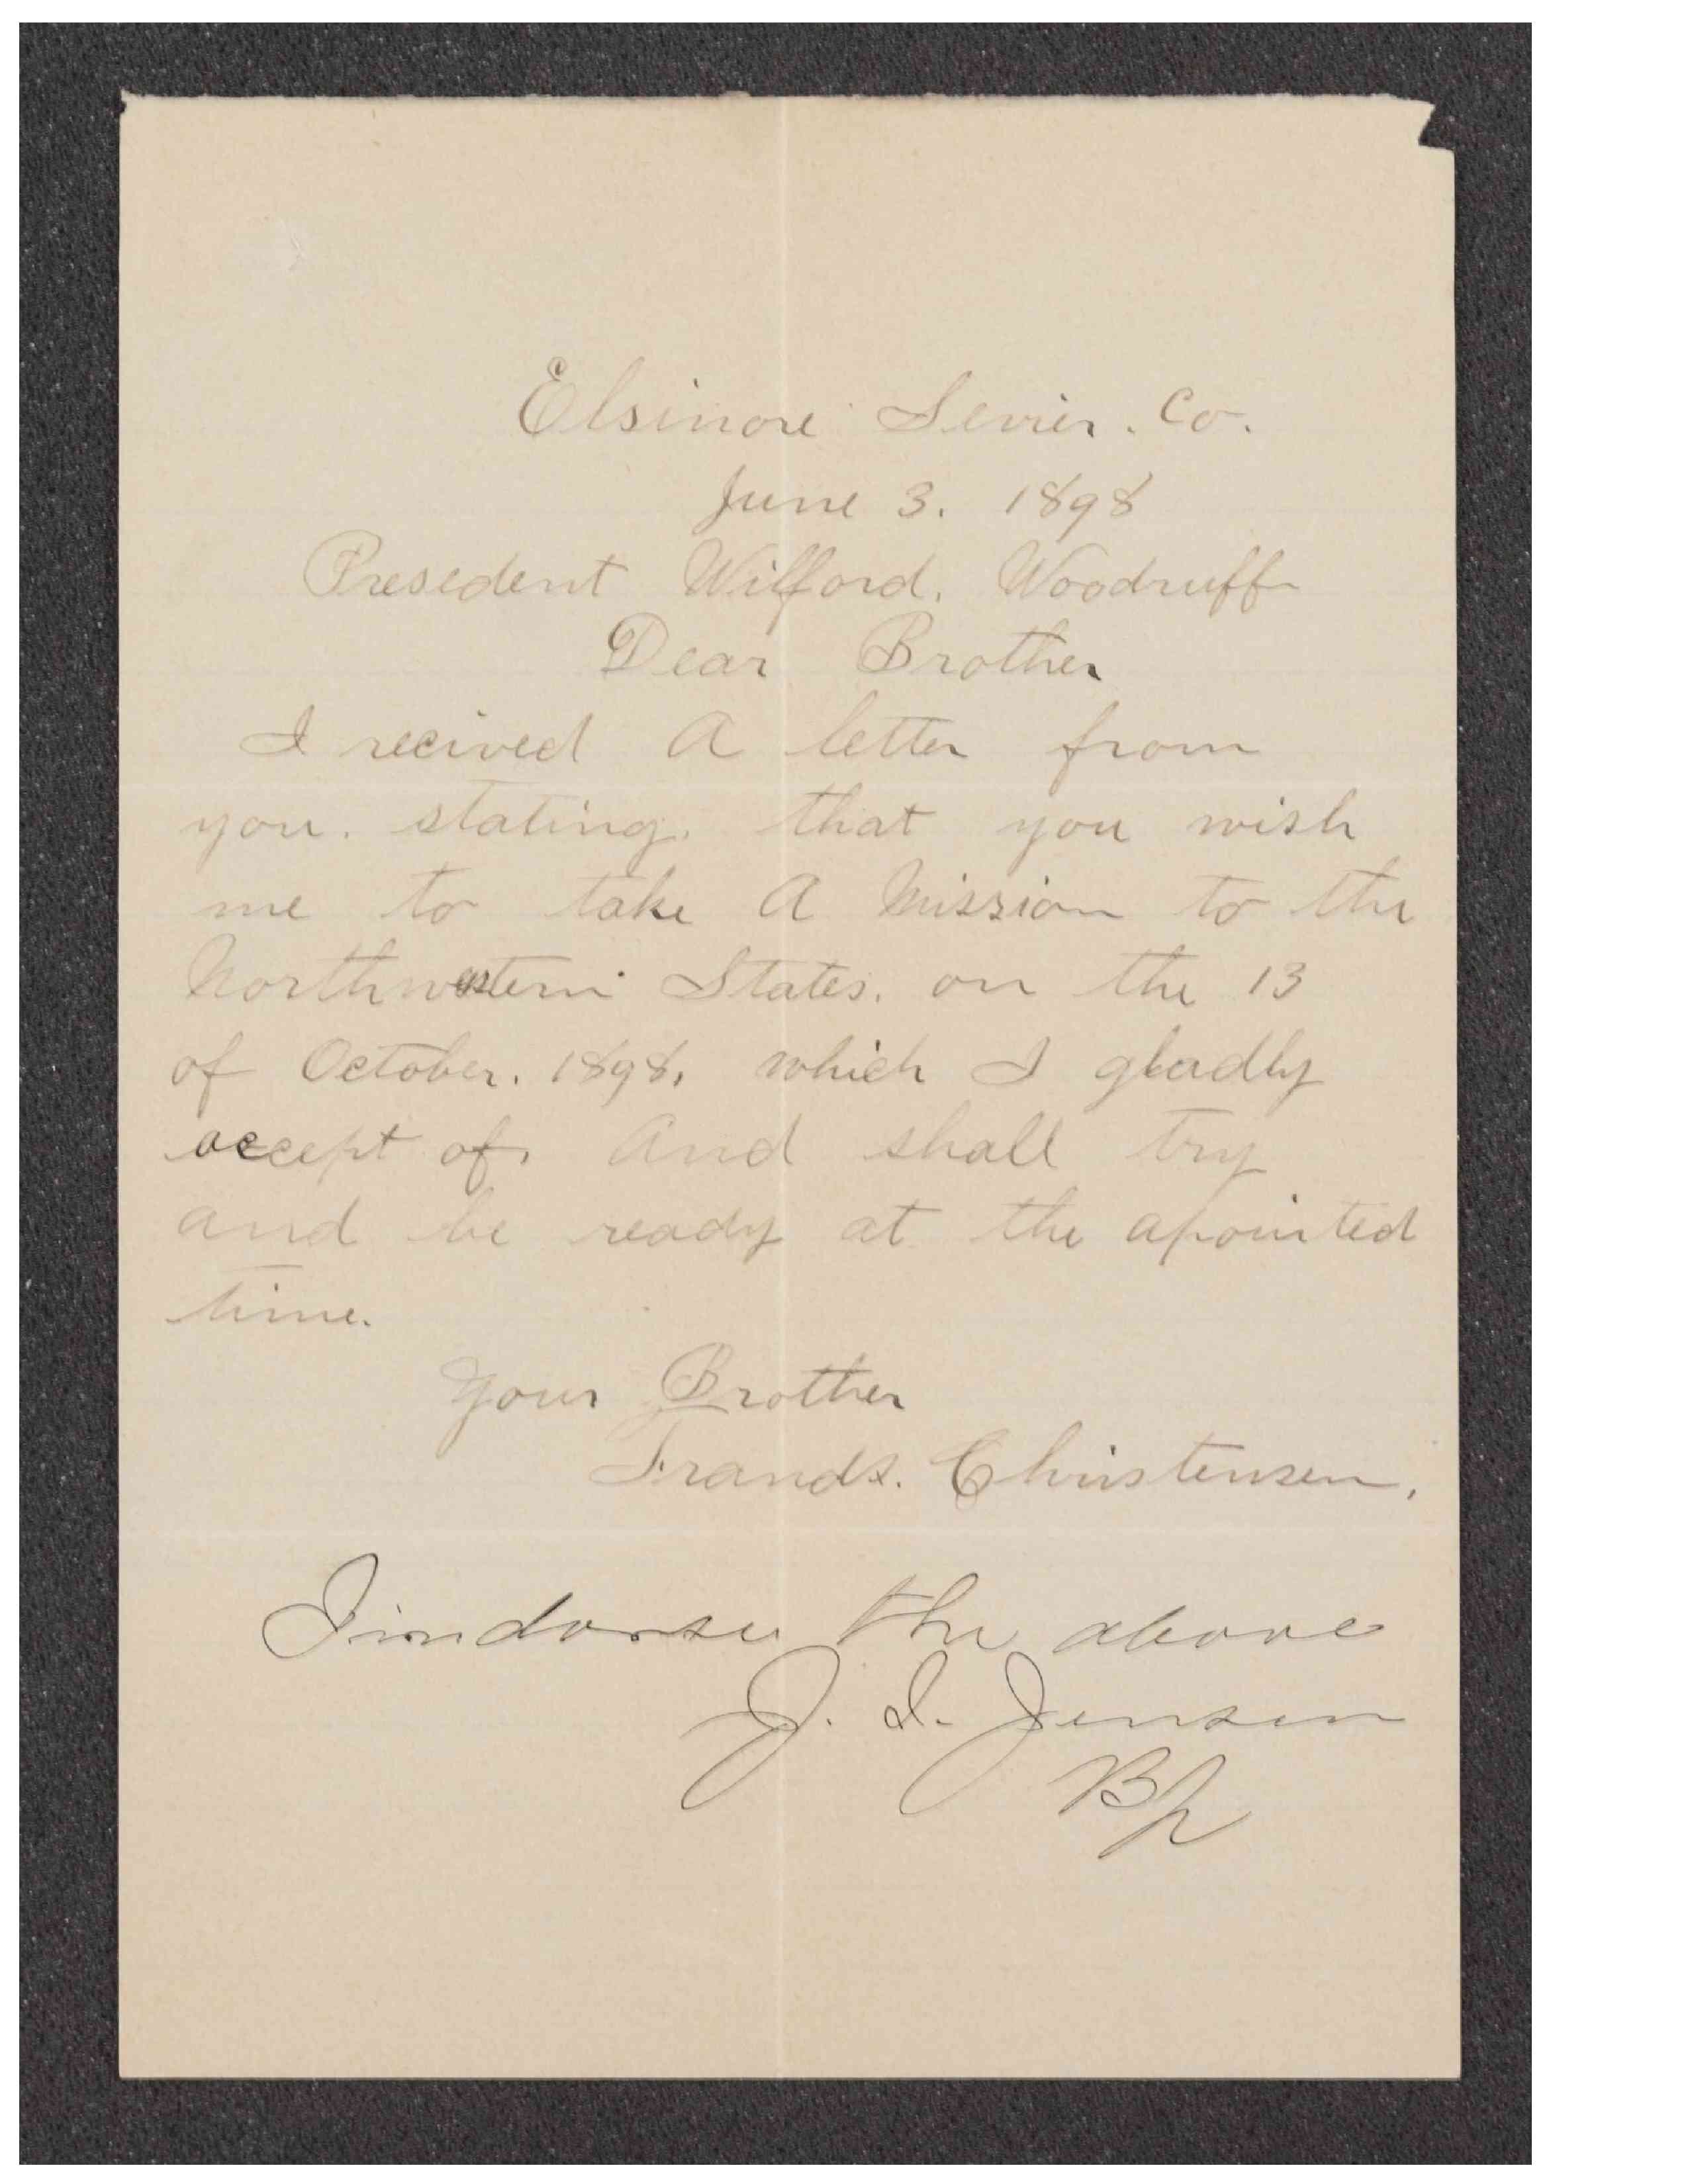 Elsinore Sevier. Co.
June 3. 1898
Presedent Wilford. Woodruff
Dear Brother
I recived A letter from
you. stating. that you wish
me to take A Mission to the
Northwestern States. on the 13
of October. 1898. which I gladly
accept of. And shall try
and be ready at the apointed
time.
Your Brother
Frands. Christensen.
I indorse the above
J. I. Jensen
Bp